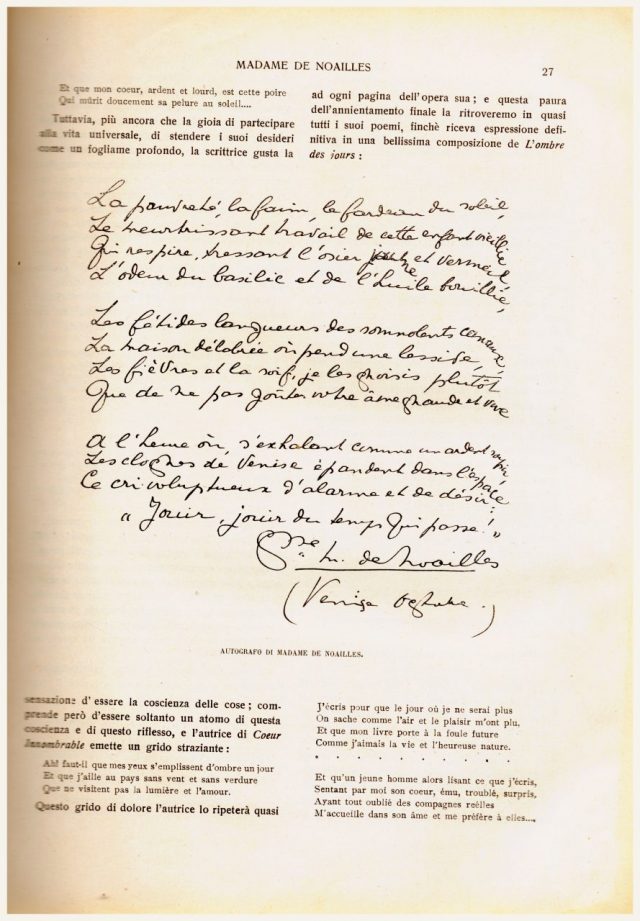 MADAME DE NOAILLES
27
Et que mon coeur, ardent et lourd, est cette poire
Qui mûrit doucement sa pelure au soleil....
Tuttavia, più ancora che la gioia di partecipare
alla vita universale, di stendere i suoi desideri
come un fogliame profondo, la scrittrice gusta la
ad ogni pagina dell'opera sua ; e questa paura
dell'annientamento finale la ritroveremo in quasi
tutti i suoi poemi, finchè riceva espressione defi-
nitiva in una bellissima composizione de L'ombre
des jours :
La pauvreté, la faim, le fardeau du soleil,
Le meurtrissant travail de cette enfant vieillie
Qui respire, tressant l'osier jaune et vermeil,
L'odeur du basilic et de l'huile bouillie,
Les fétides langueurs des somnolents canaux,
La maison délabrée où pend une lessive,
Les fièvres et la soif, je les choisis plutôt
Que de ne pas goûter votre âme chaude et vive
A l'heure où, s'exhalant comme un ardent soupir,
Les cloches de Venise épandent dans l'espace
Ce cri voluptueux d'alarme et de désir :
" Jouir, jouir du temps qui passe! "
de Noailles
(Venise octobre.)
AUTOGRAFO DI MADAME DE NOAILLES.
sensazione d'essere la coscienza delle cose ; com-
prende però d'essere soltanto un atomo di questa
coscienza e di questo riflesso, e l'autrice di Coeur
Innombrable emette un grido straziante :
Ah! faut-il que mes yeux s'emplissent d'ombre un jour
Et que j'aille au pays sans vent et sans verdure
Que ne visitent pas la lumière et l'amour.
Questo grido di dolore l'autrice lo ripeterà quasi
J'écris pour que le jour où je ne serai plus
On sache comme l'air et le plaisir m'ont plu,
Et que mon livre porte à la foule future
Comme j'aimais la vie et l'heureuse nature.
. . . . . . . . . .
Et qu'un jeune homme alors lisant ce que j'écris,
Sentant par moi son coeur, ému, troublé, surpris,
Ayant tout oublié des compagnes reélles
M'accueille dans son âme et me préfère à elles....